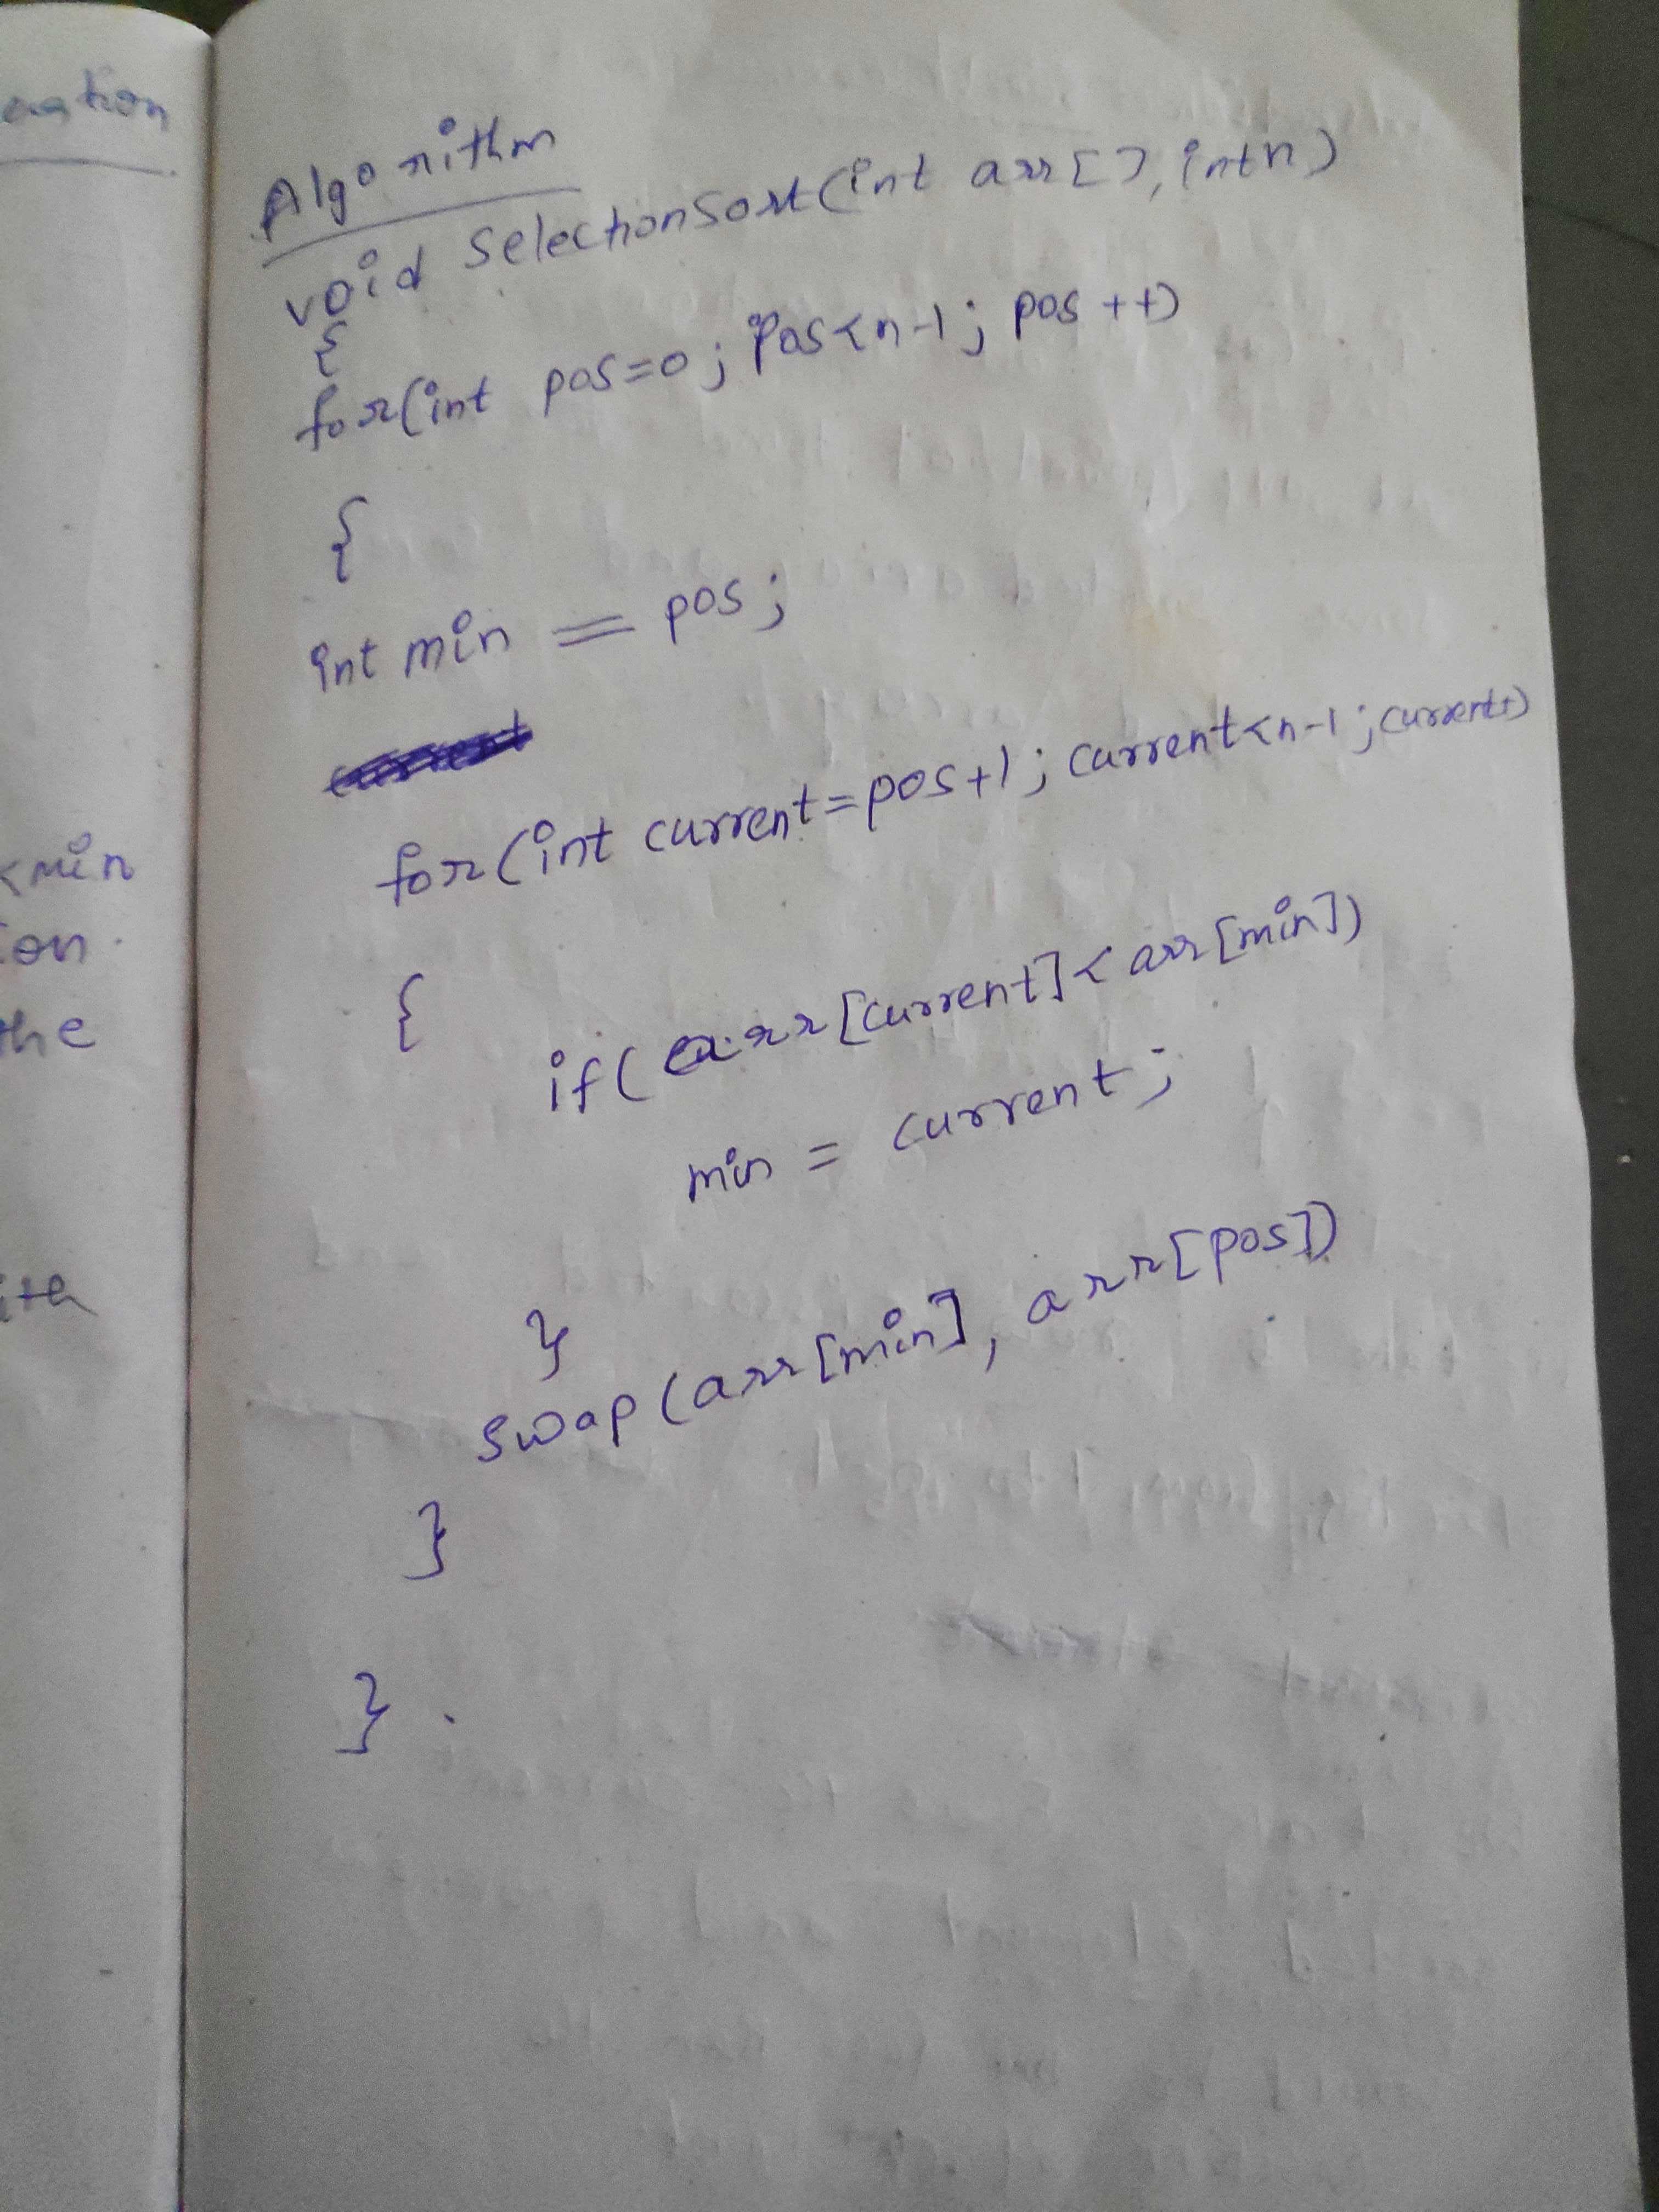 Algorithm
void SelectionSort(int arr[], int n)
{
for(int pos=0; pos<n-1; pos++)
{
int min = pos;
for(int current=pos+1; current<n-1; current++)
{
if(arr[current]<arr[min])
min = current;
}
swap(arr[min], arr[pos])
}
}.
<min
on
the